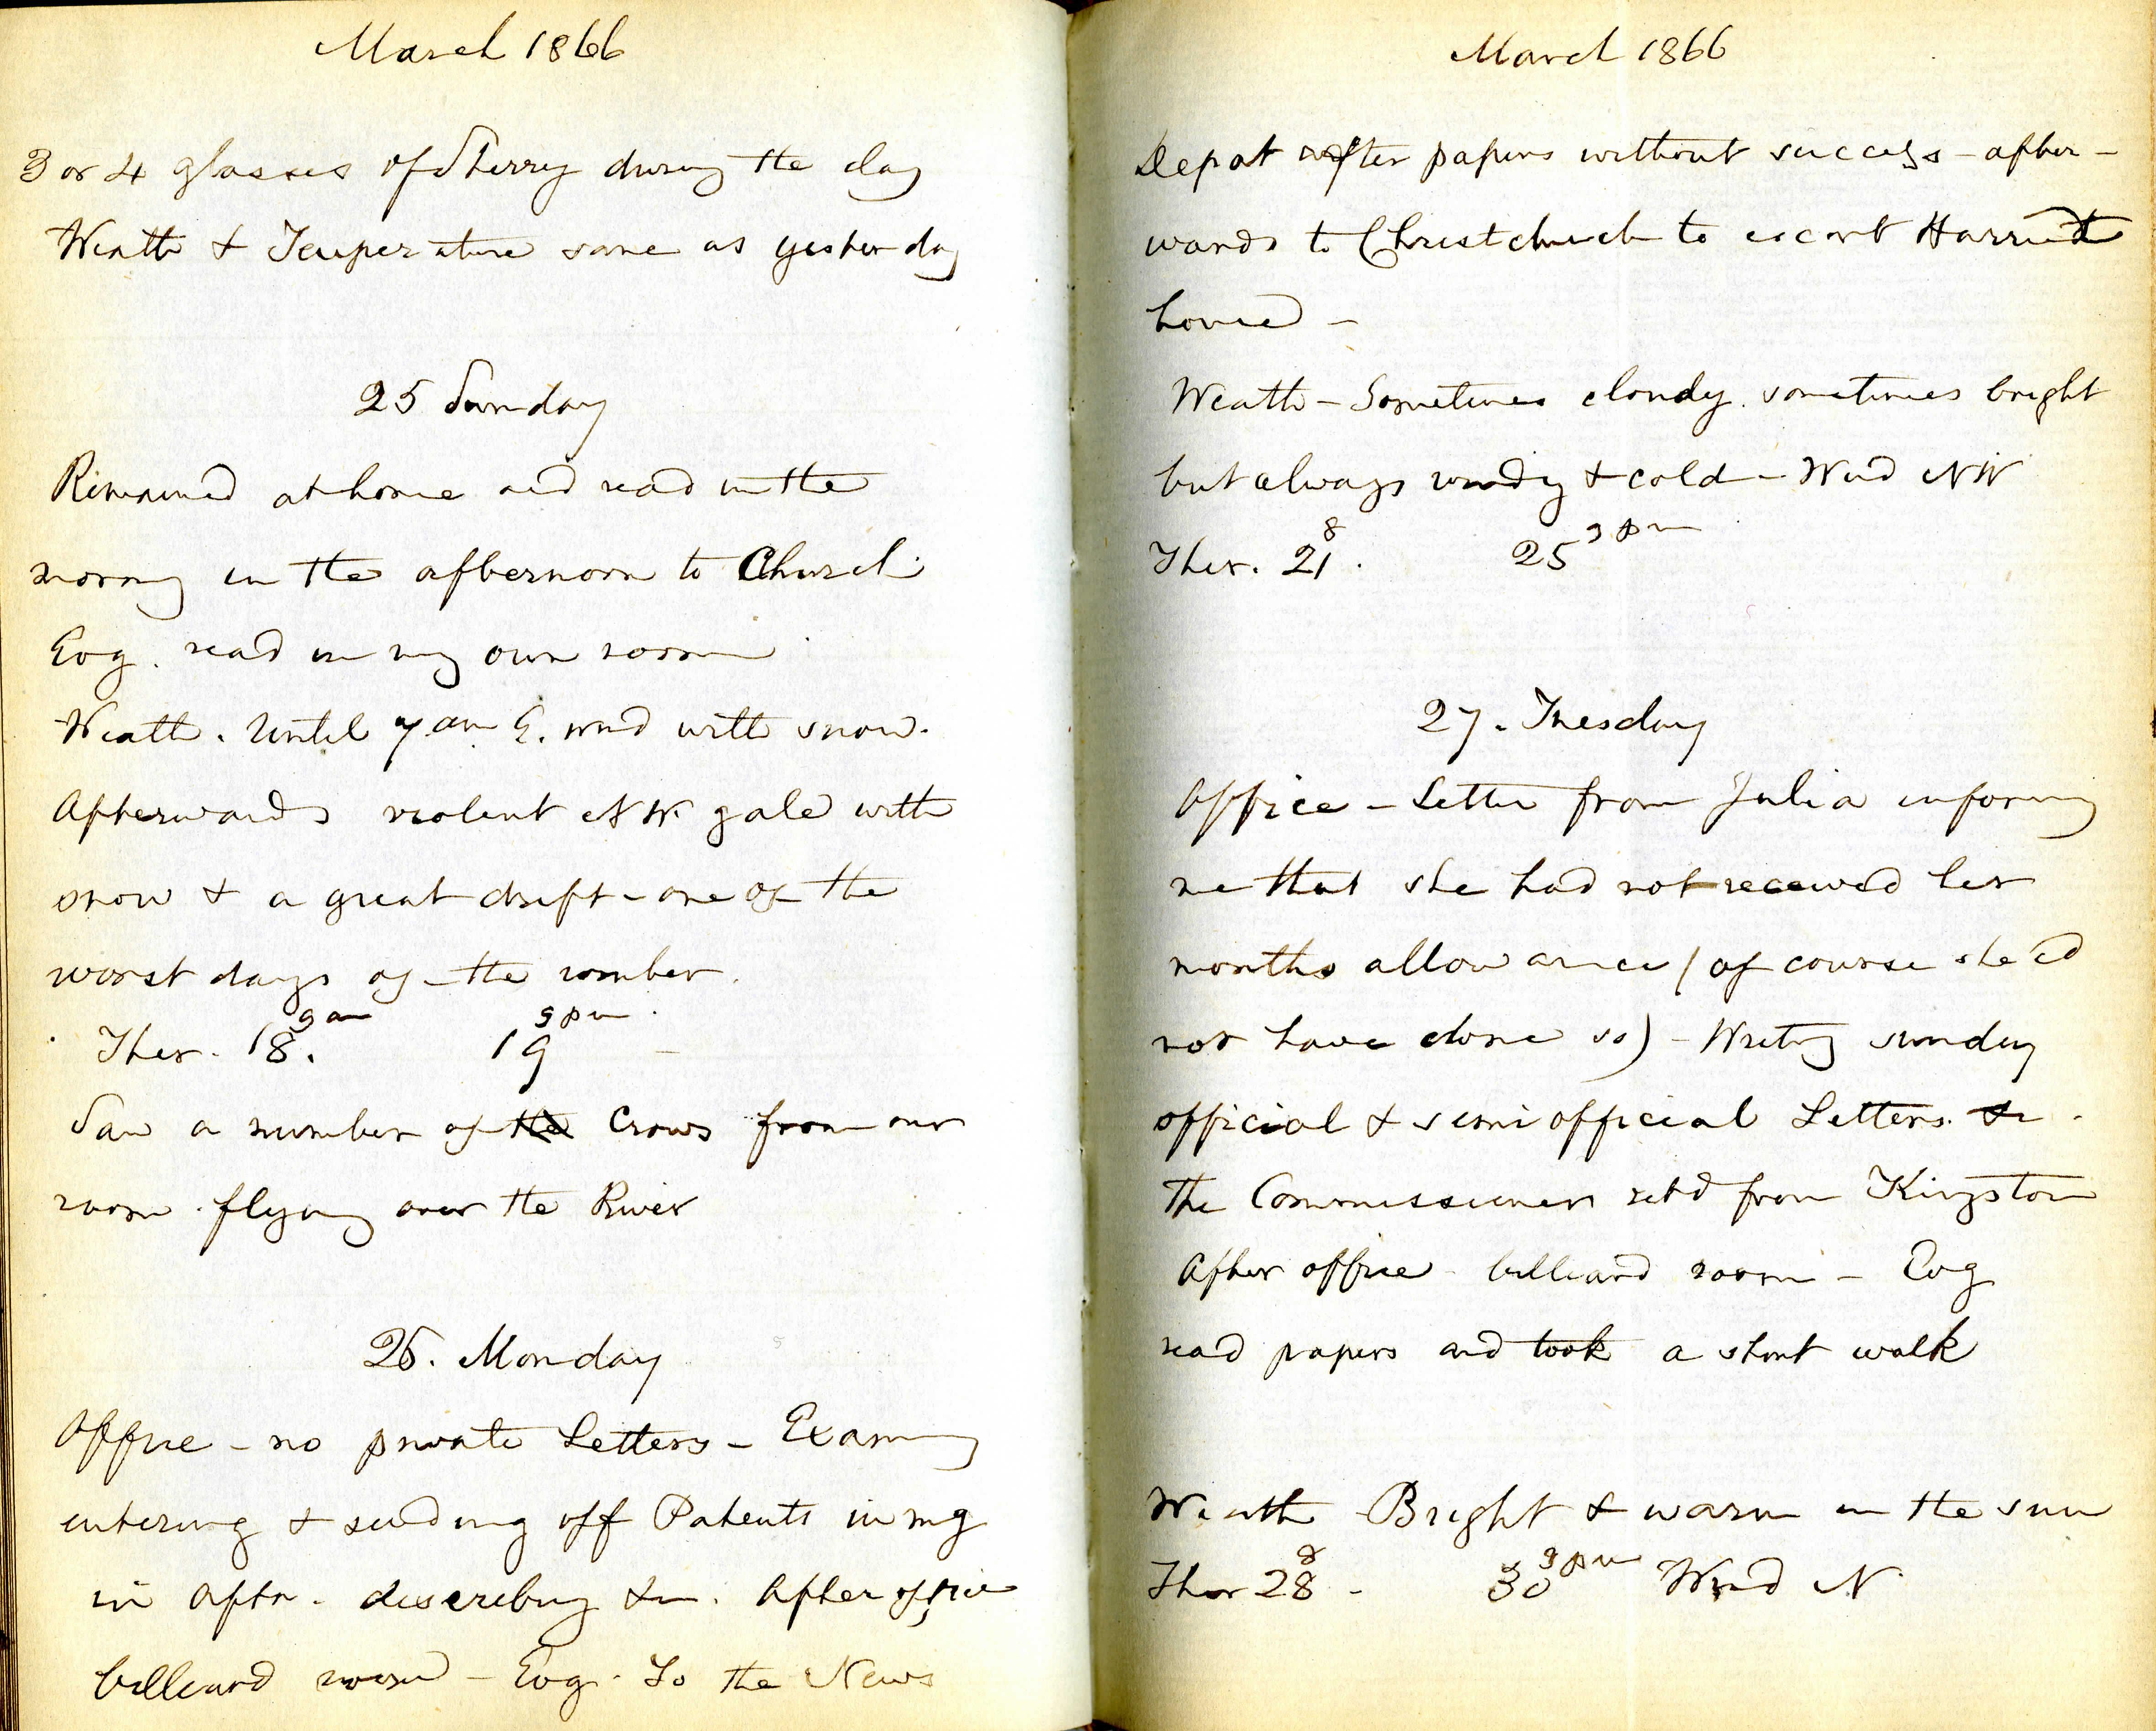 March 1866
3 or 4 glasses of Sherry during the day
Weath & Temperature same as yesterday
25 Sunday
Remained at home and read in the
morng in the afternoon to Church
Evg. read in my own room
Weath. Until 7 am E. wind with snow.
Afterwards violent NW. gale with
snow & a great drift - one of the
worst days of the winter.
9 am 9 pm
Ther. 18. 19
Saw a number of the Crows from our
room flying over the River
26. Monday
Office - no private Letters - Examg
entering & sending off Patents in mg
in aftn. describing &c. After office
billiard room - Evg. To the News
March 1866
Depot after papers without success - after-
wards to Christchurch to escort Harriet
home -
Weath - Sometimes cloudy sometimes bright
but always windy & cold - Wind NW
8 9 pm
Ther. 21. 25
27. Tuesday
Office - Letter from Julia informg
me that she had not received her
months allowance ( of course she cd
not have done so) - Writing sundry
official & semi official Letters. &c.
The Commissioner retd from Kingston
After office billiard room - Evg
read papers and took a short walk
Weath Bright & warm in the sun
8 9 pm
Ther 28 - 30 Wind N.